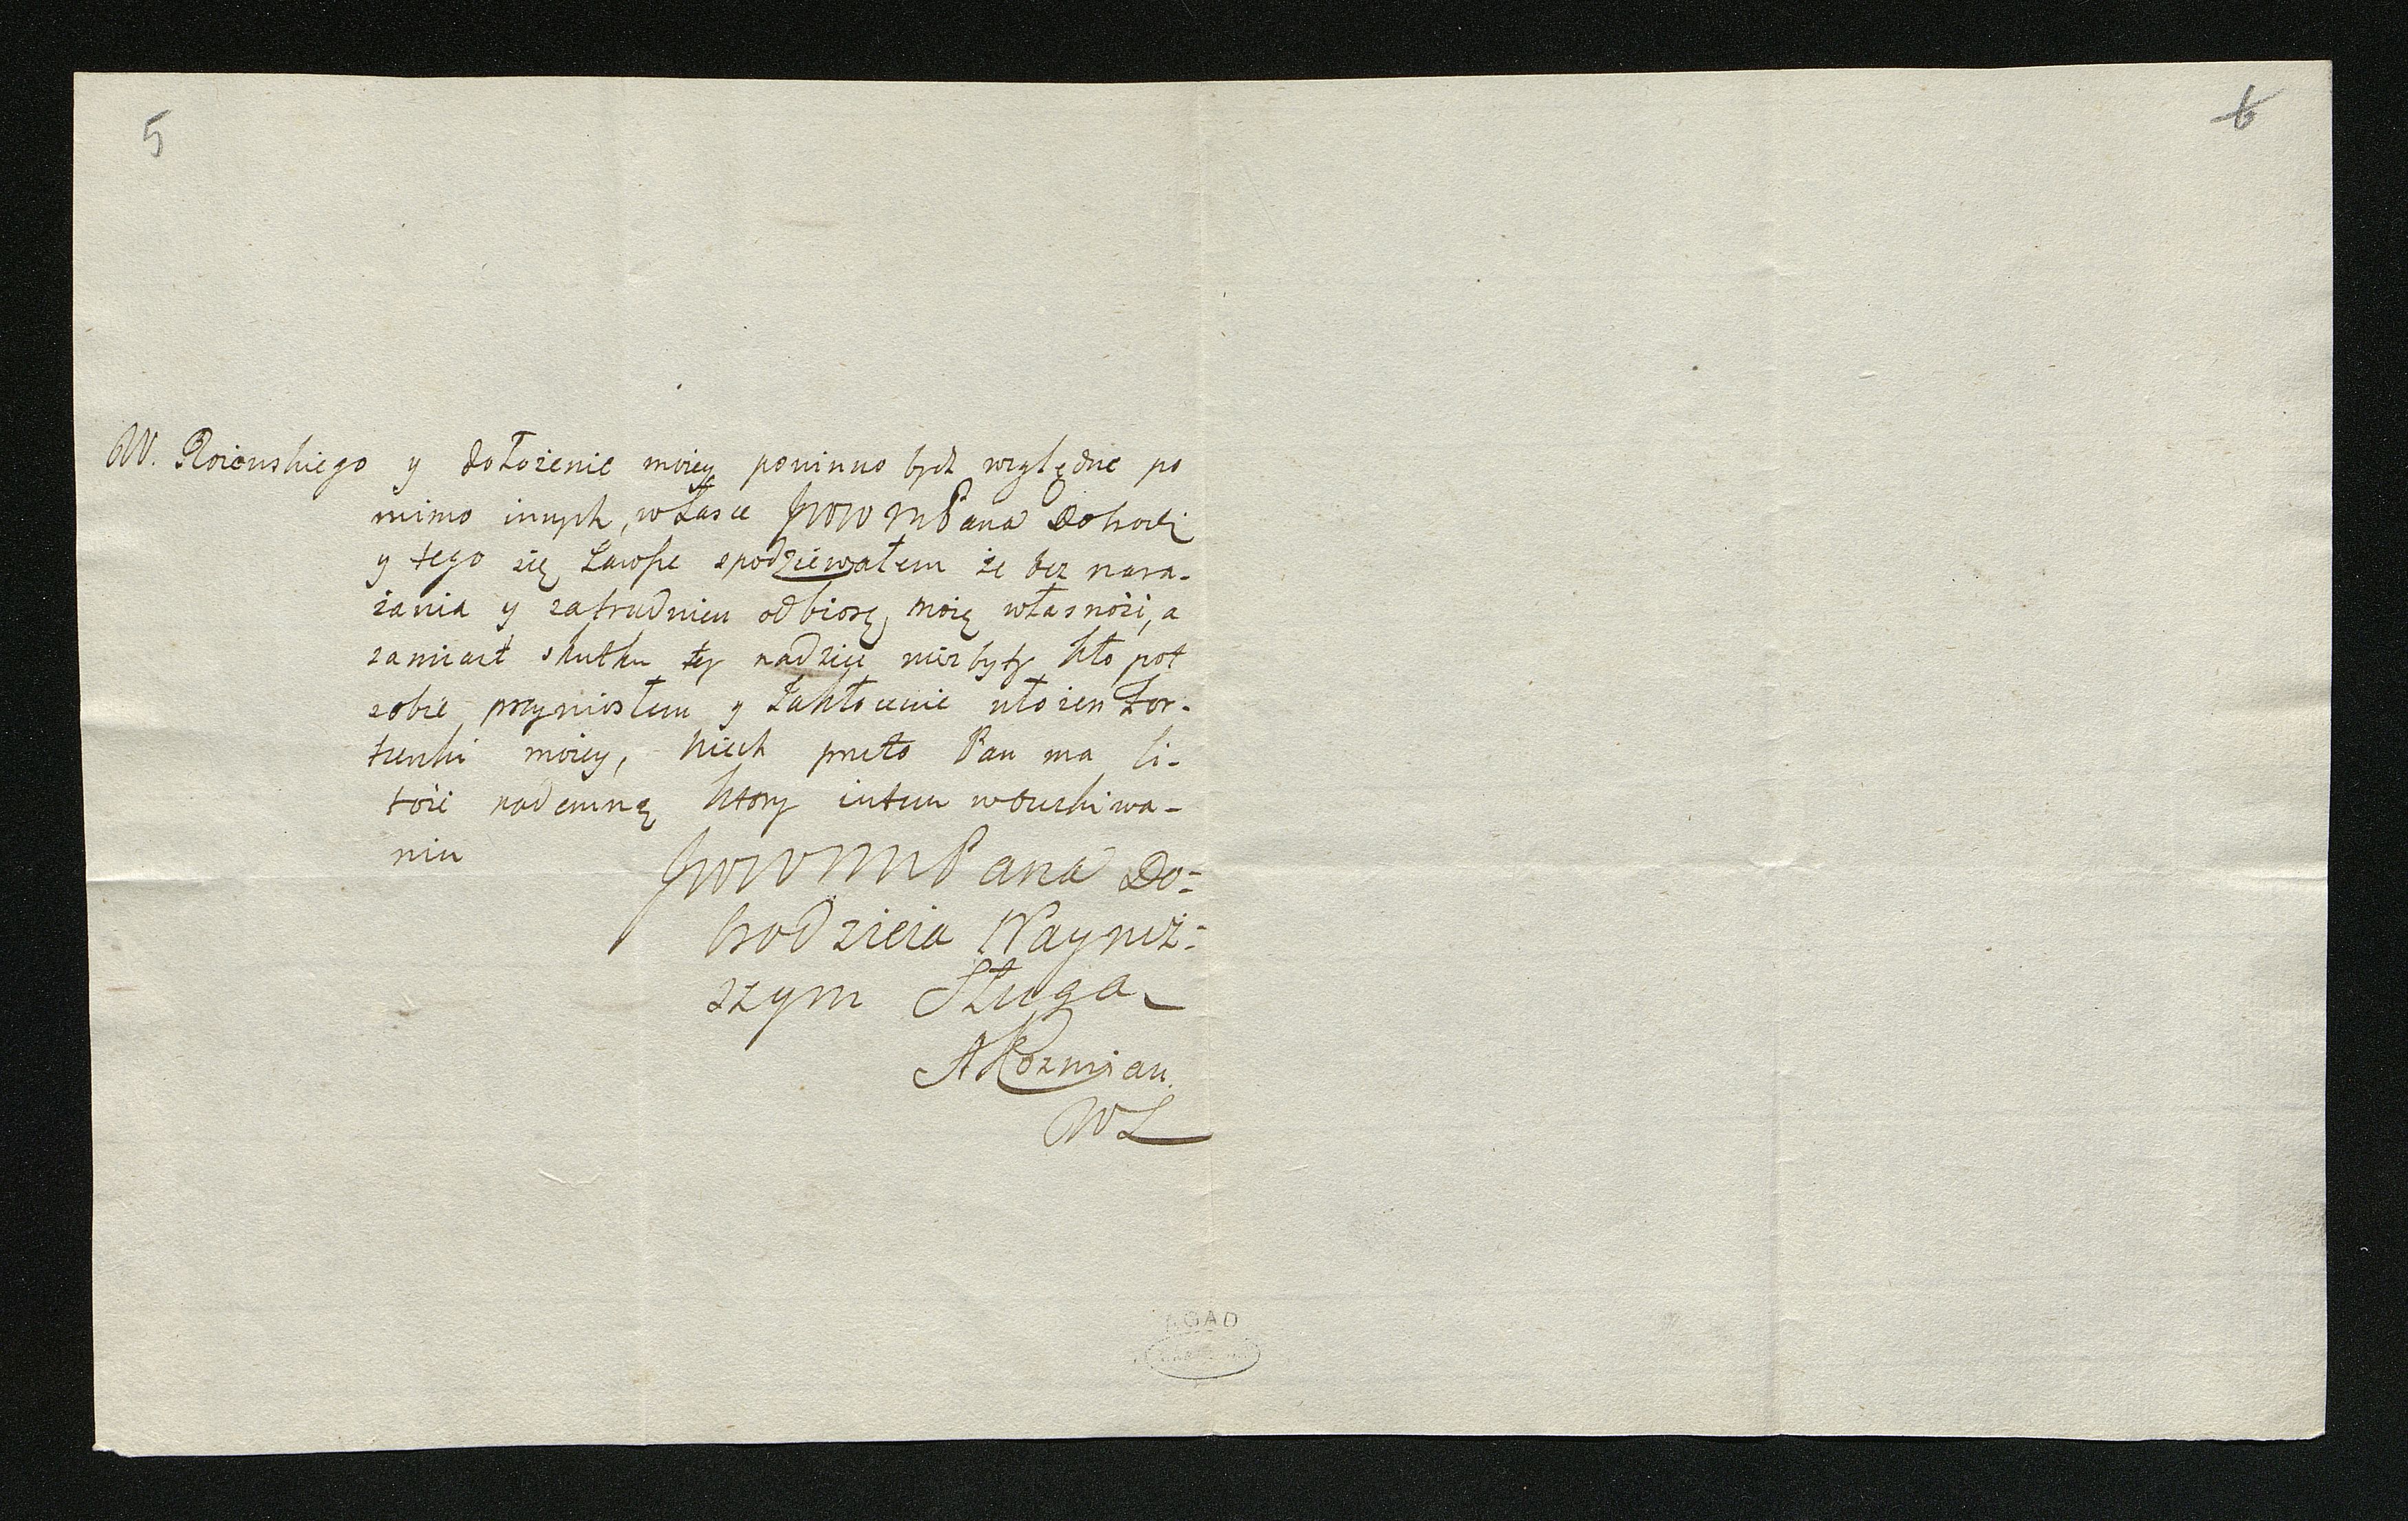 5
6
W. Roiewskiego y dołożenie moiey powinno bydź względne po
mimo innych, własce JWWMPana Dobrodz
y tego się zawsze spodziewałem że bez nara-
żania y zatrudnien odbiorę moię własność, a
zamiast skutku tey nadziei niezbyty kłopot
sobie przyniosłem y zakłocenie ułożen
moiey, niech przeto Pan ma li-
tość nademną ktory iestem woczekiwa-
niu
JWWMPana Do=
brodzieia Nayniż=
szym Sługa
AKozmian
WL
AGAD